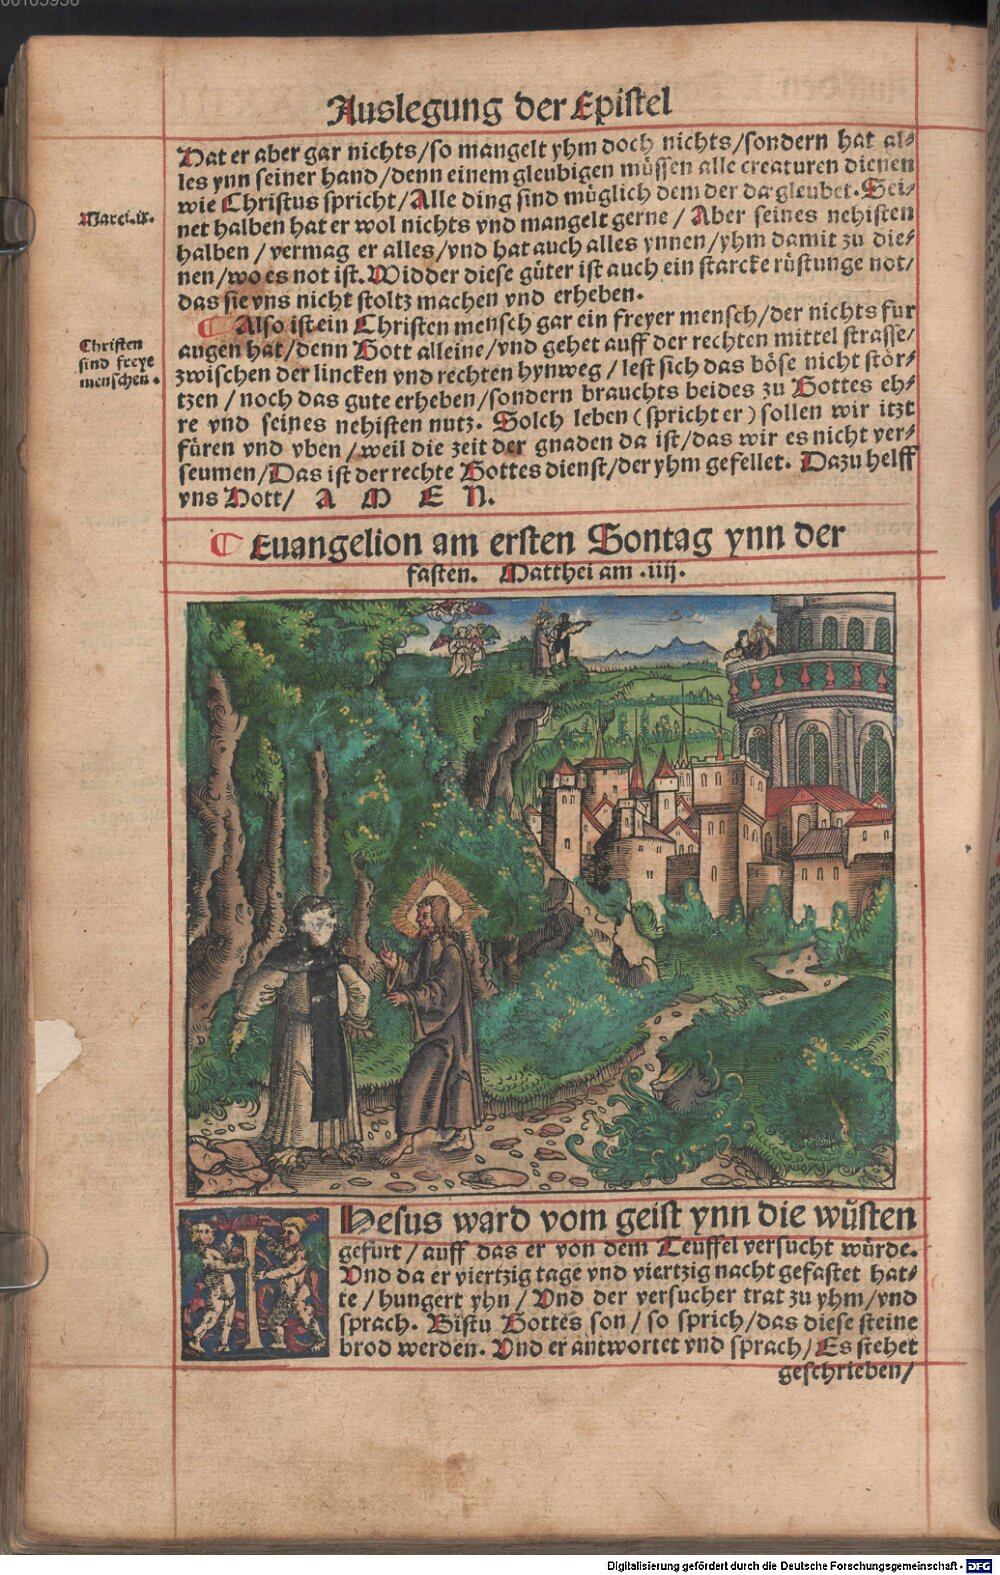 Auslegung der Epistel
Hat er aber gar nichts/so mangelt yhm doch nichts/sondern hat al⸗
les ynn seiner hand/denn einem gleubigen müssen alle creaturen dienen
wie Christus spricht/Alle ding sind müglich dem der da gleubet. Sei⸗
Marci.ix.
net halben hat er wol nichts vnd mangelt gerne/ Aber seines nehisten
halben/vermag er alles/vnd hat auch alles ynnen/yhm damit zu die⸗
nen/wo es not ist. Widder diese güter ist auch ein starcke rüstunge not/
das sie vns nicht stoltz machen vnd erheben.
Also ist ein Christen mensch gar ein freyer mensch/der nichts fur
Christen
sind freye
menschen.
augen hat/denn Gott alleine/vnd gehet auff der rechten mittel strasse/
zwischen der lincken vnd rechten hynweg/lest sich das böse nicht stör⸗
tzen/noch das gute erheben/sondern brauchts beides zu Gottes eh⸗
re vnd seines nehisten nutz. Solch leben (spricht er) sollen wir itzt
füren vnd vben/weil die zeit der gnaden da ist/das wir es nicht ver⸗
seumen/Das ist der rechte Gottes dienst/der yhm gefellet. Dazu helff
vns Gott/ A M E N.
Euangelion am ersten Sontag ynn der
fasten. Matthei am .iiij.
IHesus ward vom geist ynn die wüsten
gefurt/auff das er von dem Teuffel versucht würde.
Vnd da er viertzig tage vnd viertzig nacht gefastet hat⸗
te/hungert yhn/Vnd der versucher trat zu yhm/vnd
sprach. Bistu Gottes son/so sprich/das diese steine
brod werden. Vnd er antwortet vnd sprach/Es stehet
geschrieben/
Digitalisierung gefördert durch die Deutsche Forschungsgemeinschaft - DFG